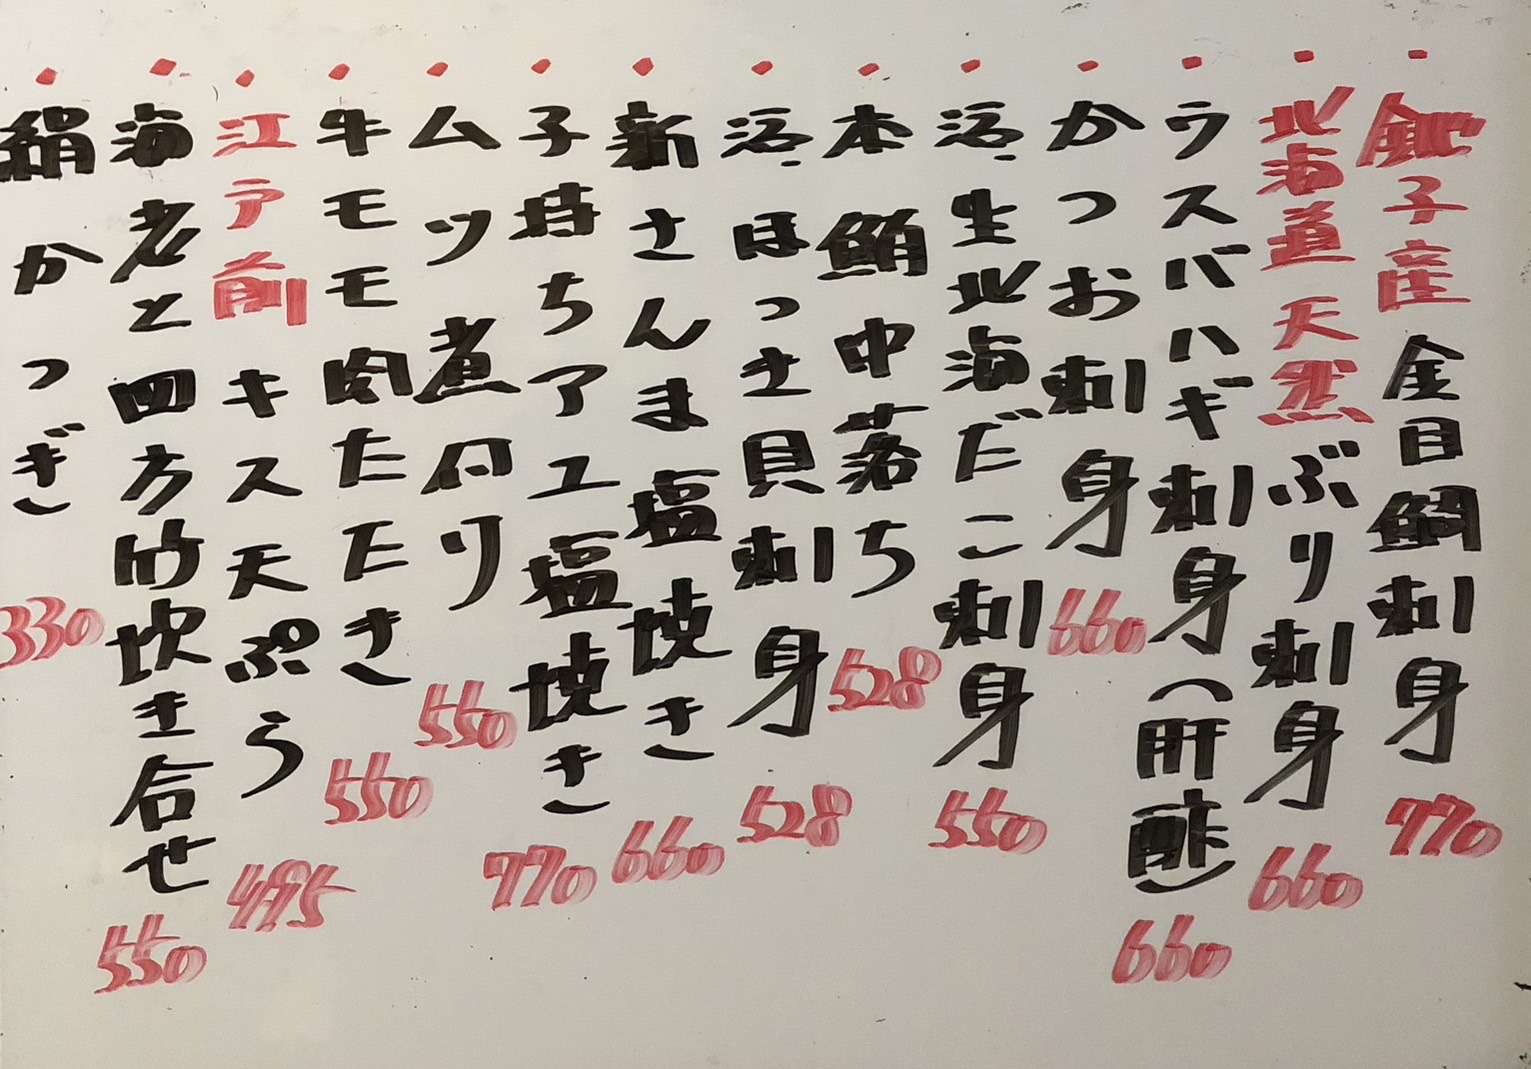 ・銚子産 金目鯛刺身 770
・北海道 天然 ぶり刺身 660
・ウスバハギ刺身(肝酢) 660
・かつお刺身 660
・活生北海だこ刺身 550
・本鮪 中落ち 528
・活ほっき貝刺身 528
・新さんま塩焼き 660
・子持ちアユ塩焼き 770
・ムツ煮付り 550
・牛モモ肉たたき 550
・江戸前 キス天ぷら 495
・海老と四方竹炊き合せ 550
・絹かつぎ 330